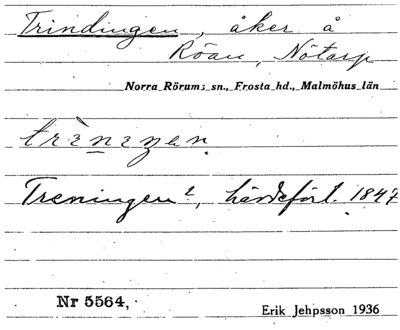 Trindingen, åker å
Röan, Nötarp
Norra Rörums sn., Frosta hd., Malmöhus län
Treningen?, hävdeförl. 1847
Nr 5564,
Erik Jehpsson 1936